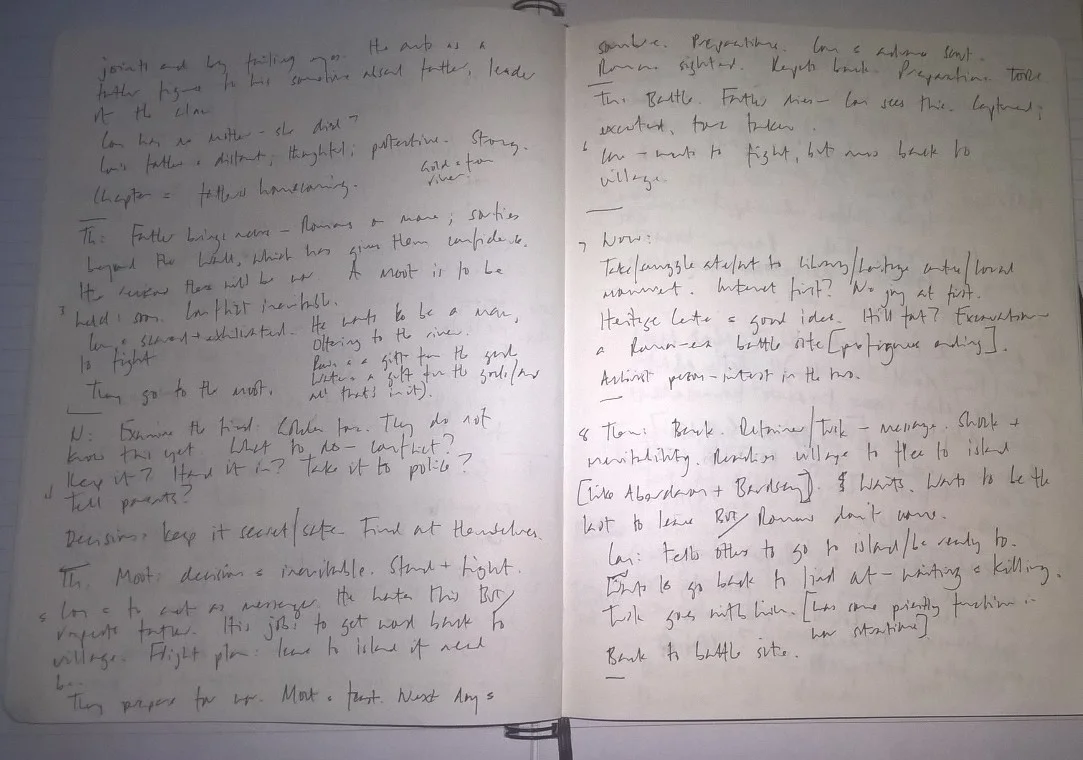 joints and by failing eyes. He acts as a
father figure to his sometime absent father, leader
of the clan
Con has no mother - she died?
Con's father = distant; thoughtful; protective. Strong.
Chapter = father's homecoming.
Gold = from
river
Th: Father brings news - Romans on move; sorties
beyond the wall, which has given them confidence.
He reckons there will be war. A moot is to be
3 held soon. Conflict inevitable.
Con = scared + exhilarated. He wants to be a man,
to fight
Offering to the river.
River is a gift from the gods
Water = a gift from the gods/and
all that's in it).
They go to the moot.
N: Examine the find. Golden torc. They do not
know this yet. What to do - conflict?
4 Keep it? Hand it in? Take it to police?
Tell parents?
Decision: keep it secret/safe. Find out themselves.
Th. Moot: decision = inevitable. Stand + fight.
5 Con = to act as messenger. He hates this But/
respects father. His job: to get word back to
village. Flight plan: leave to island if need
be..
They prepare for war. Moot = feast. Next day =
sombre. Preparations. Con = advance scout.
Romans sighted. Reports back. Preparation. Torc
Th. Battle. Father dies - Con sees this. Captured;
executed, torc taken.
6 Con - wants to fight, but runs back to
village.
7 Now:
Take/smuggle artefact to library/heritage centre/local
museum. Internet first? No joy at first.
Heritage Centre = good idea. Hill fort? Excavation -
a Roman-era battle site [prefigures ending].
Archivist person - interest in the two.
8 Then: Back. Retainer/Tusk - message. Shock +
inevitability. Readies village to flee to island
[like Aberdaron + Bardsey]. Waits. Wants to be the
last to leave But/ Romans don't come.
Con: tells others to go to island/be ready to.
Wants to go back to find out - waiting = killing.
Tusk goes with him. [has some priestly function in
war situations]
Back to battle site.